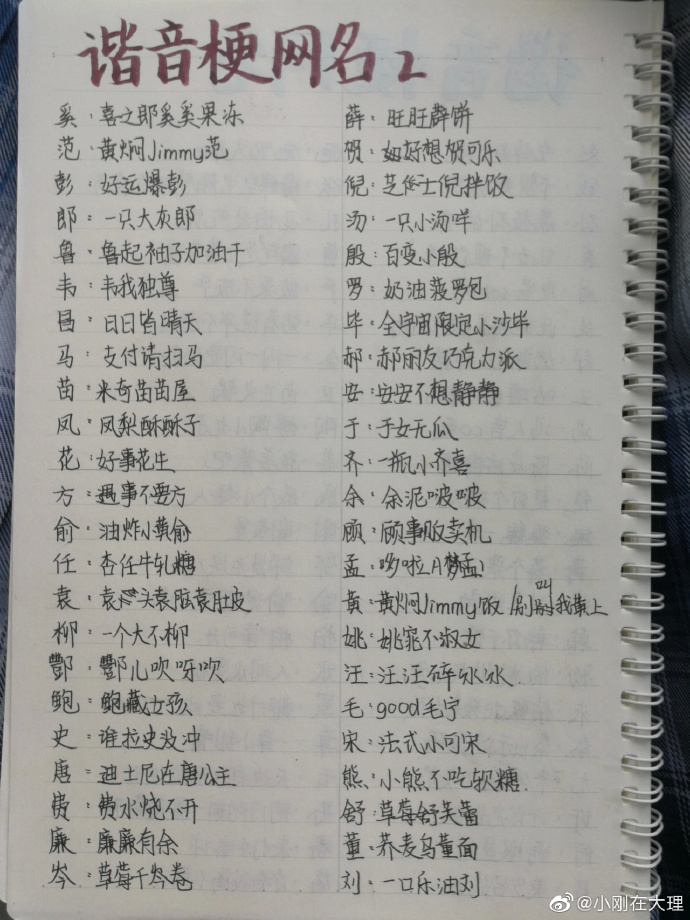 谐音梗网名2
奚：喜之郎奚奚果冻
范：黄焖Jimmy范
彭：好运爆彭
郎：一只大灰郎
鲁：鲁起袖子加油干
韦：韦我独尊
昌：日日皆晴天
马：支付请扫马
苗：米奇苗苗屋
凤：凤梨酥酥子
花：好事花生
方：遇事不要方
俞：油炸小黄俞
任：杏任牛轧糖
袁：袁头袁脑袁肚皮
柳：一个大不柳
酆：酆儿吹呀吹
鲍：鲍藏女孩
史：谁拉史没冲
唐：迪士尼在唐公主
费：费水烧不开
廉：廉廉有余
岑：草莓千岑卷
薛：旺旺薛饼
贺：好想贺可乐
倪：芝士倪拌饭
汤：一只小汤咩
殷：百变小殷
罗：奶油菠罗包
毕：全宇宙限定小沙毕
郝：郝丽友巧克力派
安：安安不想静静
于：于女无瓜
齐：一瓶小齐喜
余：余泥啵啵
顾：顾事贩卖机
孟：哆啦A孟
黄：黄焖Jimmy饭/别叫我黄上
姚：姚窕不淑女
汪：汪汪碎冰冰
毛：good毛宁
宋：法式小可宋
熊：小熊不吃软糖
舒：草莓舒芙蕾
董：荞麦乌董面
刘：一口乐油刘
@小刚在大理